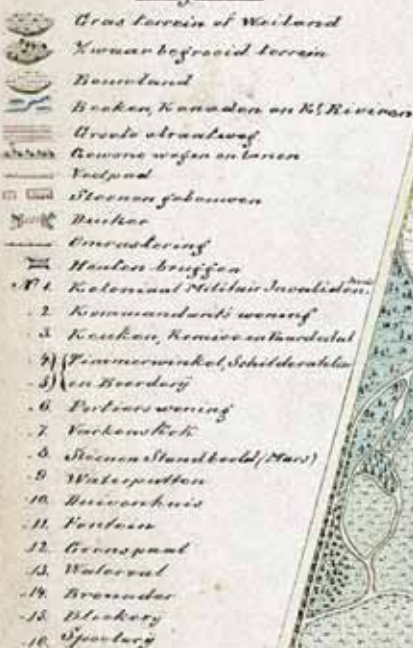 Gras terrein of Weiland
Zwaar begroeid terrein
Bouwland
Beeken, Kanalen en Kl. Rivieren
Groote straatweg
Gewone wegen en lanen
Voetpad
Steenen gebouwen
Duiker
Omrastering
Houten bruggen
No 1. Koloniaal Militair Invaliden
2. Kommandants woning
3. Keuken, Remise en Paardestal
4) Timmerwinkel, Schilderatelier
5) en Boerderij
6. Portiers woning
7. Varkenshok
8. Steenen Standbeeld (Mars)
9. Waterputten
10. Duivenhuis
11. Fontein
12. Grenspaal
13. Waterval
14. Broenader
15. Bleekery
16. Spoelery